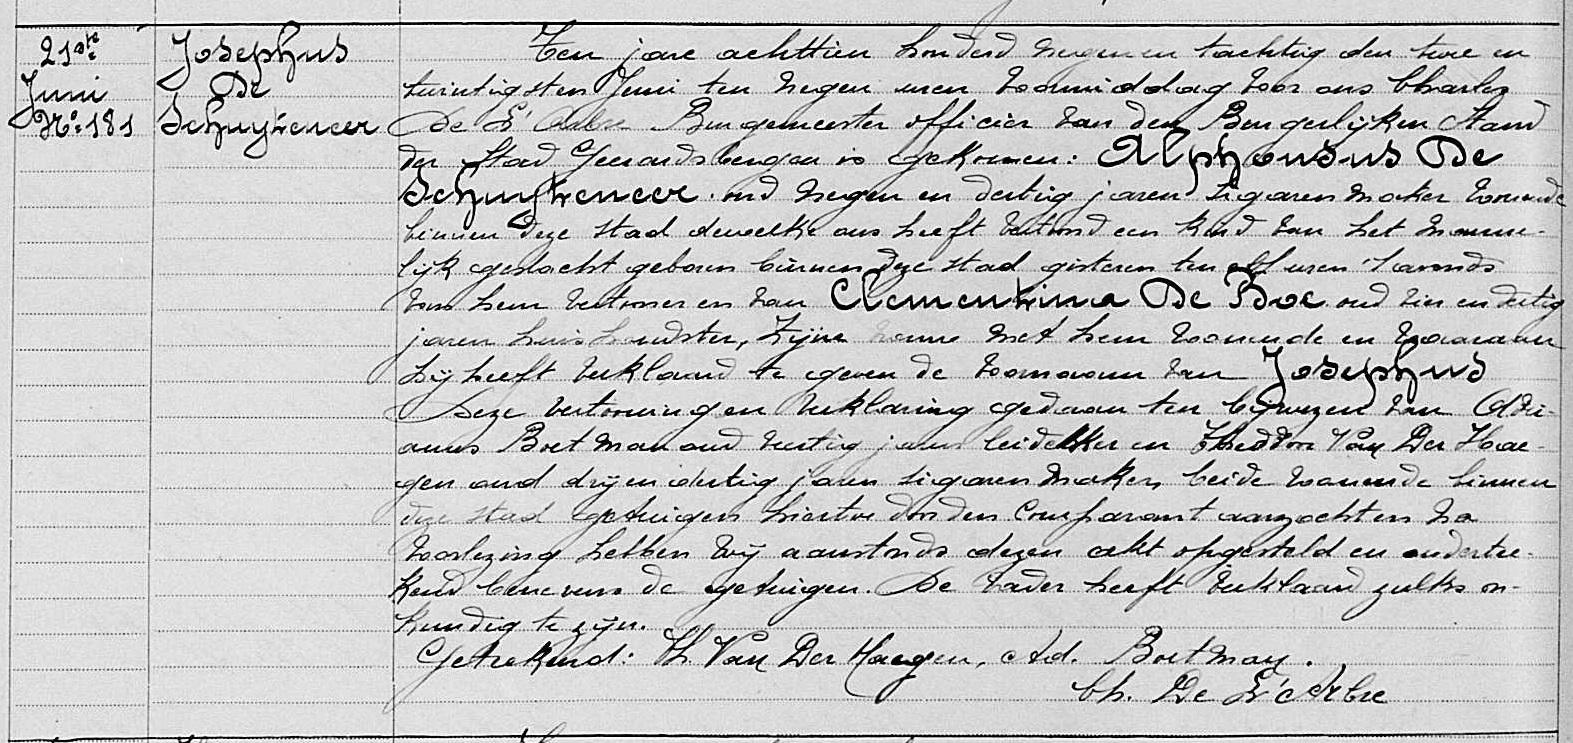 21ste
Juni
No. 181
Josephus
De
Schuyteneer
Ten jare achttien honderd negen en tachtig den twee en
twintigsten Juni ten negen uren voormiddag voor ons Charles
De L'Arbre Burgemeester officier van den Burgerlijken Stand
der Stad Geerardsbergen is gekomen: Alphonsus De
Schuyteneer oud negen en dertig jaren sigarenmaker wonende
binnen deze stad dewelke ons heeft vertoond een kind van het manne-
lijk geslacht geboren binnen deze stad gisteren ten elf uren 's avonds
van hem vertooner en van Clementina De Boe oud vier en dertig
jaren huishoudster, zijne vrouw met hem wonende en waaraan
hij heeft verklaard te geven de voornaam van Josephus
Deze vertooning en verklaring gedaan ten bijwezen van Adri-
anus Boetman oud veertig jaren leidekker en Theodoor Van Der Hae-
gen oud drij en dertig jaren sigarenmaker, beide wonende binnen
deze stad getuigen hiertoe door den comparant aanzocht en na
voorlezing hebben wij aanstonds dezen akt opgesteld en ondertee-
kend benevens de getuigen. De vader heeft verklaard zulks on-
kundig te zijn.
Geteekend: Th. Van Der Haegen, Ad. Boetman.
Ch. De L'Arbre